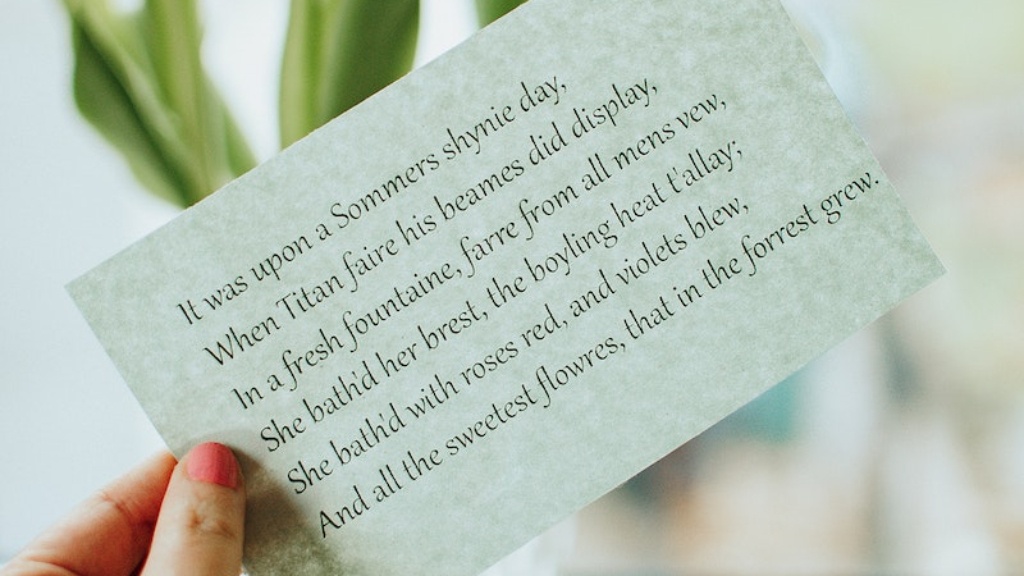 It was upon a Sommers shynie day,
When Titan faire his beames did display,
In a fresh fountaine, farre from all mens vew,
She bath'd her brest, the boyling heat t'allay;
She bath'd with roses red, and violets blew,
And all the sweetest flowres, that in the forrest grew.